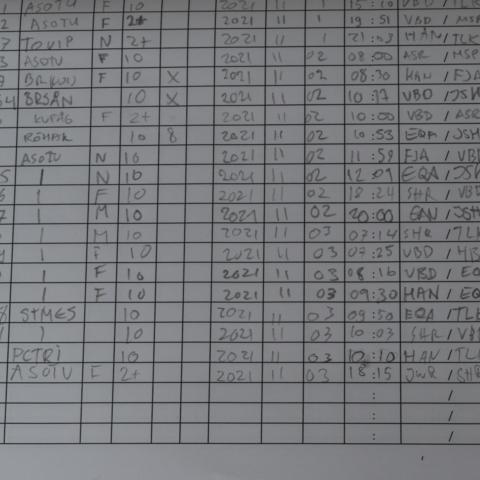 ASOTU F 10 2021 11 1 15:10 VBD/TLK
2 ASOTU F 2+ 2021 11 1 19:51 VBD/MSP
TOVIP N 2+ 2021 11 1 21:53 HAN/TLK
3 ASOTU F 10 2021 11 02 08:00 ASR/MSP
F 10 X 2021 11 02 08:30 HAN/FJA
BRSAN 10 X 2021 11 02 10:17 VBD/JSH
F 2+ 2021 11 02 10:00 VBD/ASR
10 8 2021 11 02 10:53 EQA/JSH
ASOTU N 10 2021 11 02 11:59 FJA/VB
5 | N 10 2021 11 02 12:01 EQA/JSH
| F 10 2021 11 02 18:24 SHR/VBD
7 | M 10 2021 11 02 20:00 /JSH
| M 10 2021 11 03 07:14 SHR/TLK
| F 10 2021 11 03 07:25 VBD/HB
| F 10 2021 11 03 08:16 VBD/EQ
| F 10 2021 11 03 09:30 HAN/EQ
8 STMES 10 2021 11 03 09:50 EQA/TLK
| ) 10 2021 11 03 10:03 SHR/VB
PCTRI 10 2021 11 03 10:10 HAN/TLK
ASOTU F 2+ 2021 11 03 18:15 JWR/SHR
: /
: /
: /